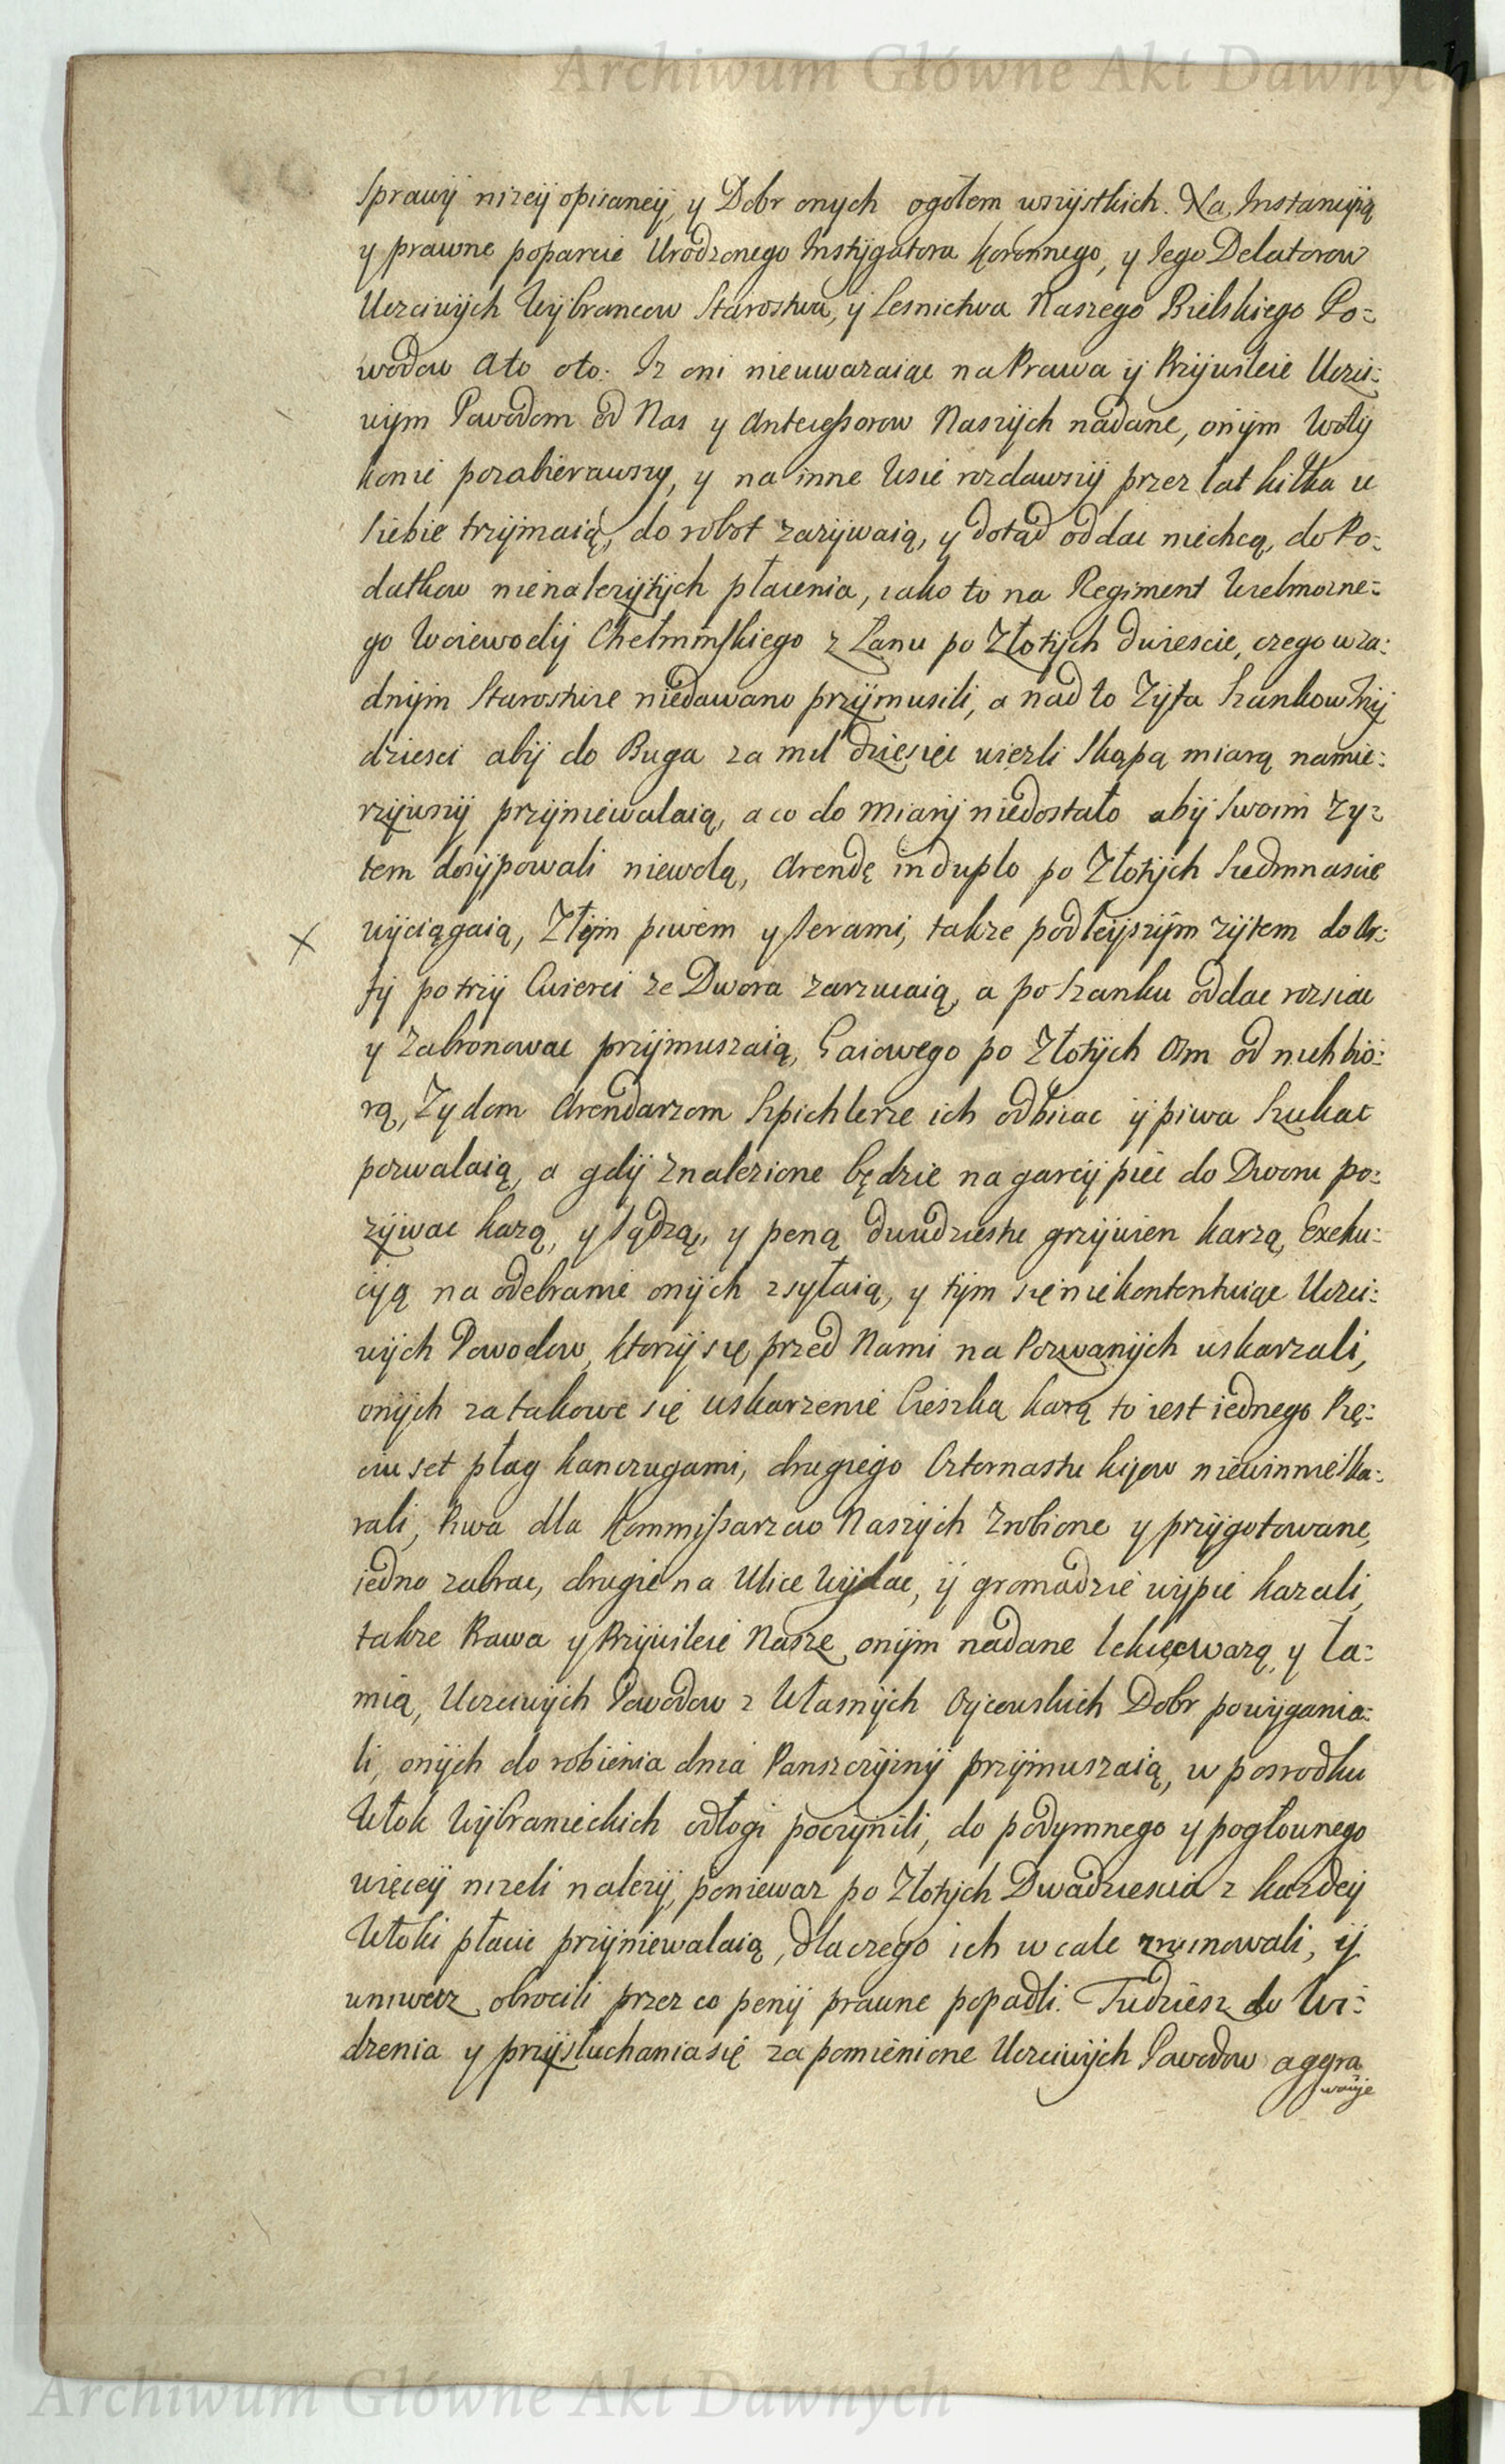 Archiwum Główne Akt Dawnych
Sprawy nizeij opisaneij, y Dobr onych ogołem wszystkich. Na Instancyią
y prawne poparcie Urodzonego Instygatora Koronnego, y Iego Delatorow
Uczciwych Wybrancow Starostwa, ij Lesnictwa Naszego Bielskiego Po=
wodow Ato oto. Iz oni nieuwazaiąc na Prawa ij Przywileie Uczci=
wym Powodom od Nas y Antecessorow Naszych nadane, onym Woły
konie pozabierawszy, y na inne Wsie rozdawszy przez lat kilka u
siebie trzymaią, do robot zazywaią, y dotąd oddac niechcą, do Po=
datkow nienalezytych płacenia, iako to na Regiment Wielmozne=
go Woiewody Chełminskiego z Łanu po Złotych dwiescie, czego w za=
dnym Starostwie niedawano przymusili, a nad to Zyta Szankow Trzy
dziesci aby do Buga za mil dziesięc wiezli skąpą miarą namie=
rzywszy przyniewalaią, a co do miary niedostało aby swoim Zy=
tem dosypowali niewolą, Arendę induplo po Złotych Siedmnascie
wyciągaią, Złym piwem y serami, takze podleyszym zytem do kr=
ty po trzy Cwierci ze Dwora zarzucaią, a po Szanku oddac rozsiac
y Zabronowac przymuszaią, Gaiowego po Złotych Osm od nich bio=
rą, Zydom Arendarzom Szpichlerze ich odbiiac ij piwa Szukac
pozwalaią, a gdy znalezione będzie na garcy pięc do Dworu po=
zywac kazą, y sądzą, y peną dwudziestu grzywien karzą, Exeku=
cyą na odebranie onych zsyłaią, y tym się niekontentuiąc Uczci=
wych Powodow, ktorzy się przed Nami na Pozwanych uskarzali,
onych za takowe się uskarzenie Cieszką karą to iest iednego Pię=
ciu set plag kanczugami, drugiego Czternastu kijow niewinnie ska=
rali, Piwa dla Kommissarzow Naszych Zrobione y przygotowane,
iedno zabrac, drugie na Ulice Wylac, ij gromadzie wypic kazali,
takze Prawa y Przywileie Nasze onym nadane lekcewazą, y ła=
mią, Uczciwych Powodow z Własnych Oycowskich Dobr powygania=
li, onych do robienia dnia Panszczyzny przymuszaią, w posrodku
Włok Wybranieckich odłogi poczynili, do podymnego y pogłownego
więcey nizeli nalezy, poniewaz po Złotych Dwadziescia z kazdey
Włoki płacic przyniewalaią, dlaczego ich wcale zruinowali, ij
wniwecz obrocili przez co peny prawne popadli. Tudziesz do Wi=
dzenia y przysłuchania się za pomienione Uczciwych Powodow aggra
waije
Archiwum Główne Akt Dawnych